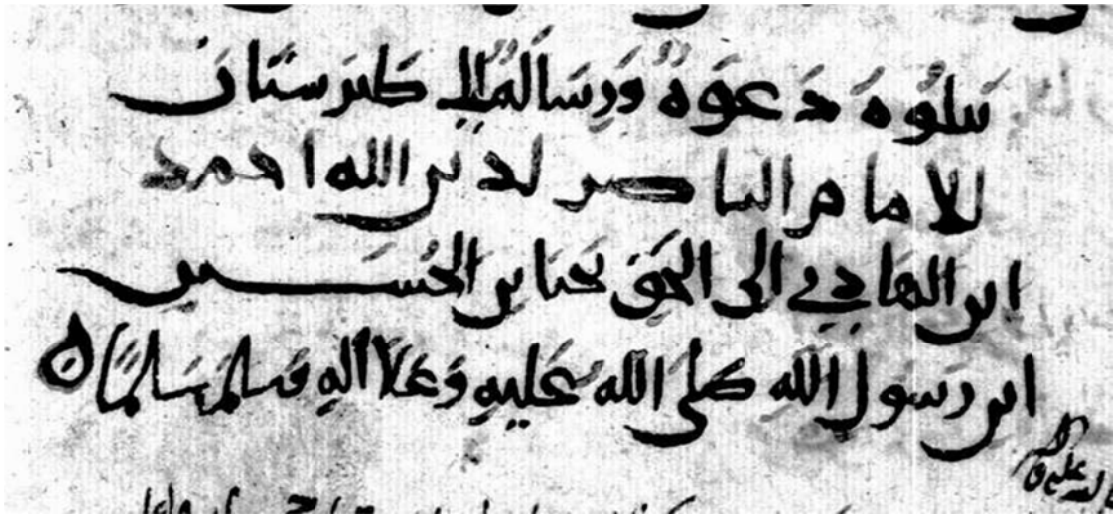 يتلوه دَعوَةٌ وَرِسَالةٌ اِلى طَبرستَان
للامام الناصر لدين الله احمد
ابن الهادي الى الحق يحيا بن الحُسَـــين
ابن رَسول الله صَلى الله عَليهِ وَعَلا الهِ وسلم تسليمًا